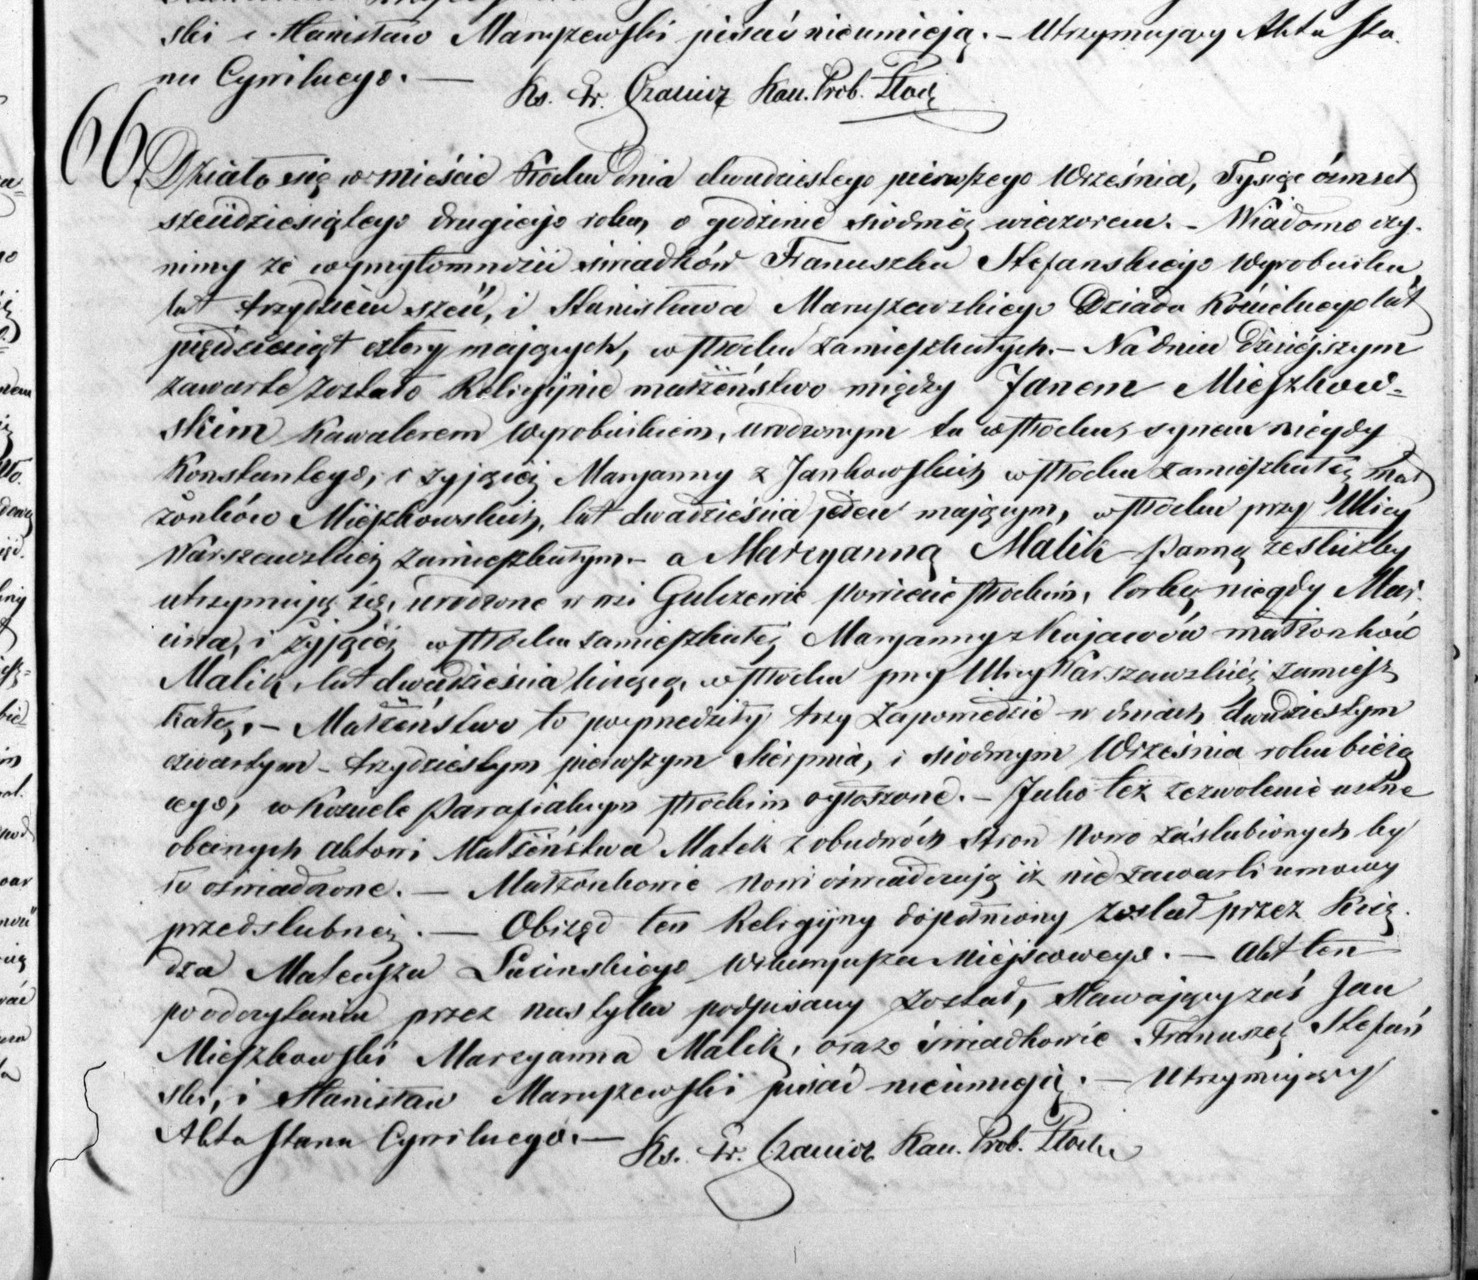 ski i Stanisław Maruszewski pisać nieumieją. – Utrzymujący Akta Sta
nu Cywilnego. —
Ks. Fr. Kan. Prob. Płocki
66. Działo się w mieście Płocku dnia dwudziestego pierwszego Września, Tysiąc ósmset
sześdziesiątego drugiego roku, o godzinie siódméj wieczorem. – Wiadomo czy-
nimy że w przytomności świadków Franciszka Stefanskiego Wyrobnika
lat trzydzieści sześć, i Stanisława Maruszewskiego Dziada Kościelnego lat
pięćdziesiąt cztery mających, w Płocku zamieszkałych. – Na dniu dzisiéjszym
zawarte zostało Religijnie małżéństwo między Janem Mieszkow-
skim Kawalerem Wyrobnikiem, urodzonym tu w Płocku, synem niegdy
Konstantego, i żyjącéj Maryanny z Jankowskich w Płocku zamieszkałéj mał
żonków Miészkowskich, lat dwadzieścia jeden mającym, w Płocku przy Ulicy
Warszawskiéj zamieszkałym. – a Marcyanną Malik Panną ze służby
utrzymującą się, urodzoną w wsi Gulczewie Powiecie Płockim, córką niegdy Mar
cina, i żyjącéj w Płocku zamieszkałéj Maryanny z Kujawów małżonków
Malik, lat dwadzieścia liczącą, w Płocku przy Ulicy Warszawskiéj zamiesz
kałą. – Małżéństwo to poprzedziły trzy zapowiedzie w dniach dwudziestym
czwartym – trzydziestym pierwszym Sierpnia, i siódmym Września roku bieżą
cego, w Kościele Parafialnym Płockim ogłoszone. – Jako też zezwolenie ustne
obecnych aktowi Małżéństwa Matek z obudwóch stron Nowo zaślubionych by
ło oświadczone. – Małżonkowie Nowi oświadczają iż nie zawarli umowy
przedślubnéj. – Obrzęd ten Religijny dopełniony został przez Księ
dza Mateusza Wikaryusza Miéjscowego. – Akt ten
po odczytaniu przez nas tylko podpisany został, Stawający zaś Jan
Mieszkowski Marcyanna Malik, oraz świadkowie Franciszek Stefań
ski, i Stanisław Maruszewski pisać nieumieją. – Utrzymujący
Akta Stanu Cywilnego. —
Ks. Fr. Kan. Prob. Płocki